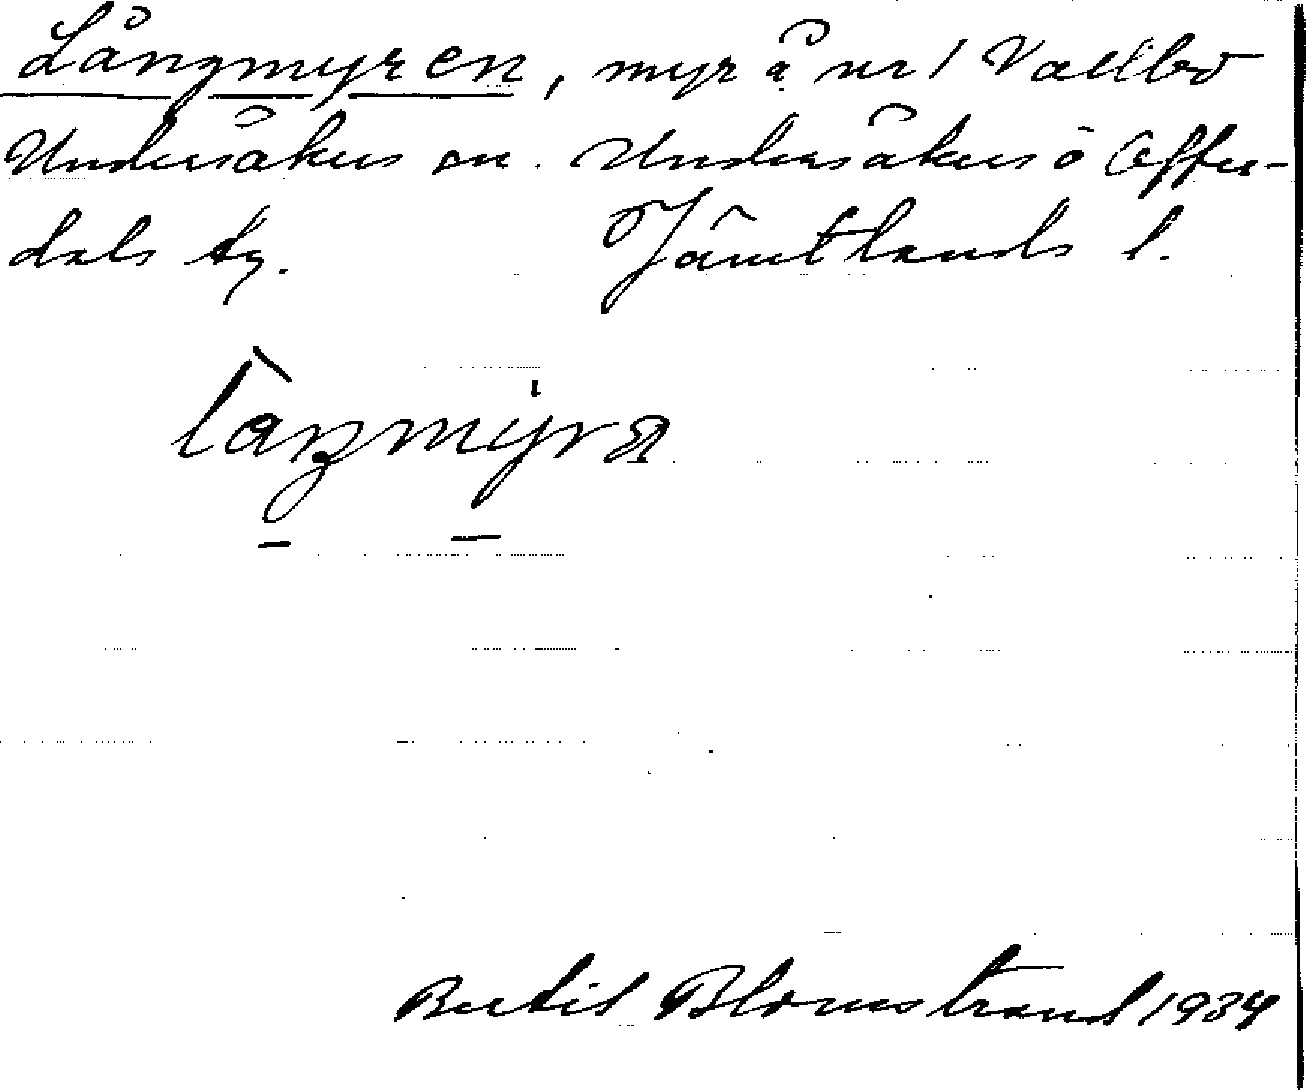 Långmyren, myr å nr 1 Vallbo
Undersåkers sn. Undersåkers o Offer-
dals tg. Jämtlands l.
Bertil Blomstrand 1934